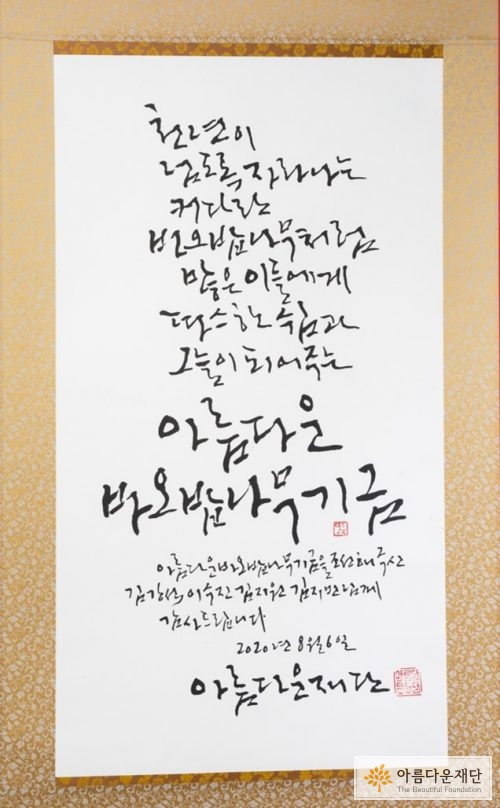 천년이
넘도록 자라나는
커다란
바오밥나무처럼
많은 이들에게
따스한 쉼과
그늘이 되어주는
아름다운
바오밥나무기금
아름다운바오밥나무기금을 조성해주신
이숙진 김지원 김지민님께
감사드립니다
2020년 8월 6일
아름다운재단
아름다운재단
The Beautiful Foundation